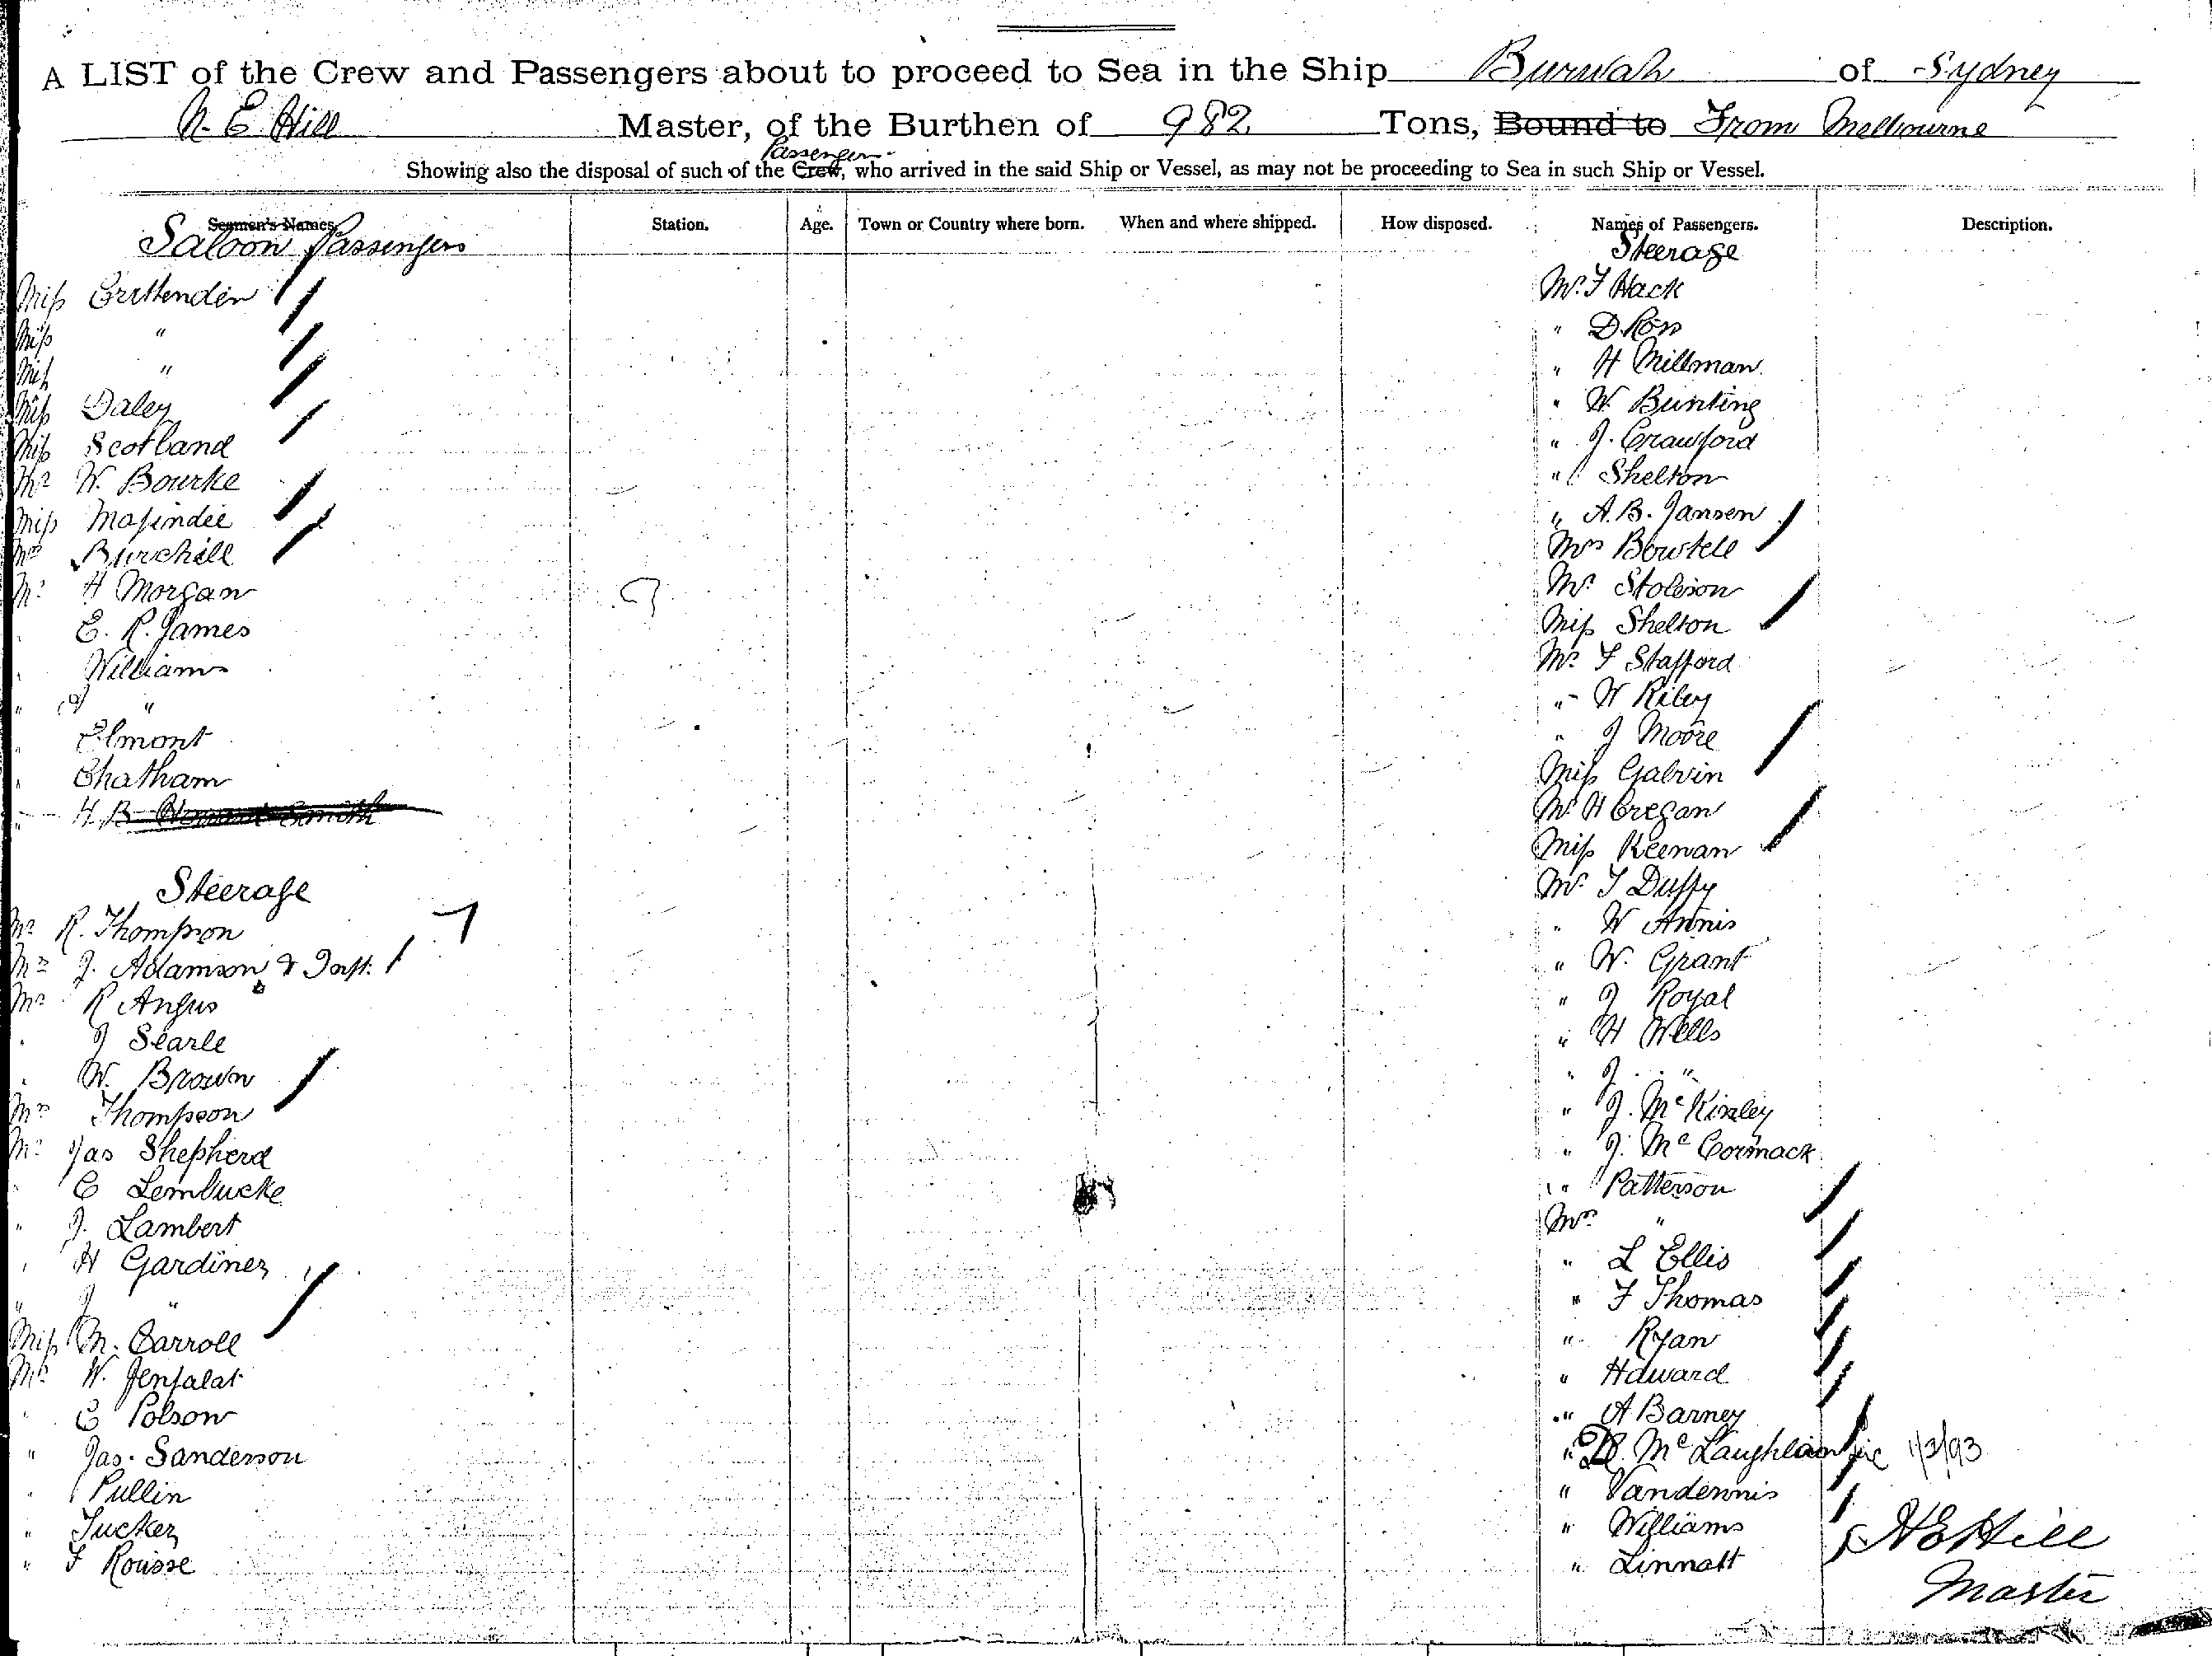 A LIST of the Crew and Passengers about to proceed to Sea in the Ship Burwah of Sydney
N. E. Hill Master, of the Burthen of 982 Tons, Bound to From Melbourne
Passengers
Showing also the disposal of such of the Crew, who arrived in the said Ship or Vessel, as may not be proceeding to Sea in such Ship or Vessel.
Seamen's Names. Station. Age. Town or Country where born. When and where shipped. How disposed. Names of Passengers. Description.
Saloon Passengers
Miss Cruttenden
Miss "
Miss "
Miss Daley
Miss Scotland
Mr W. Bourke
Miss
Mrs Burchill
Mr H Morgan
E. R. James
Williams
" J "
" Elmont
" Chatham
" H. B. Howard Smith
Steerage
Mr R. Thompson
Mrs J. Adamson & Inft.
Mr R Angus
" J Searle
" W. Brown
Mrs Thompson
Mr Jas Shepherd
" C Lembucke
" J. Lambert
" H Gardiner
" J "
Miss M. Carroll
Mr W.
" C Polson
" Jas. Sanderson
" Pullin
" Tucker
" F Rousse
Steerage
Mr. F Hack
" D. Ross
" H Millman
" W. Bunting
" J. Crawford
" Shelton
" A. B. Jansen
Mrs Bowtell
Mr.
Miss Shelton
Mr F Stafford
" W Riley
" J Moore
Miss Galvin
Mr H Cregan
Miss Keenan
Mr. T Duffy
" W Annis
" W. Grant
" J Royal
" H Wells
" J. "
" J. McKinley
" J. McCormack
" Patterson
Mrs "
" L Ellis
" F Thomas
" Ryan
" Howard
" A Barney
" McLaughlan 1/3/93
" Vandennis
" Williams
" Linnatt
N E Hill
Master